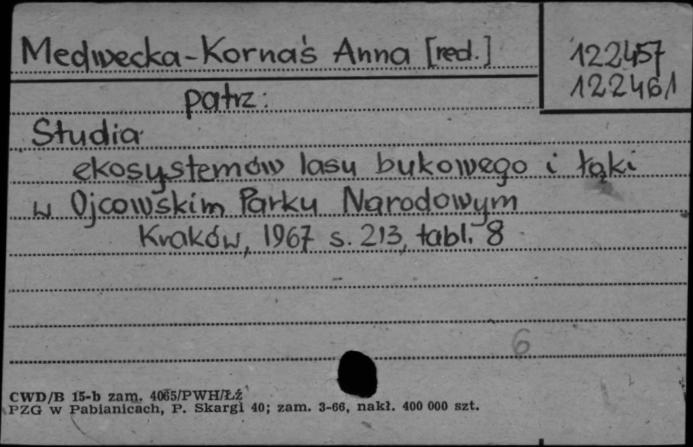 Medwecka-Kornaś Anna [red.]
122457
122461
patrz:
Studia
ekosystemów lasu bukowego i łąki
w Ojcowskim Parku Narodowym
Kraków, 1967 s. 213, tabl. 8
6
CWD/B 15-b zam. 4065/PWH/Łż
PZG w Pabianicach, P. Skargi 40; zam. 3-66, nakł. 400 000 szt.